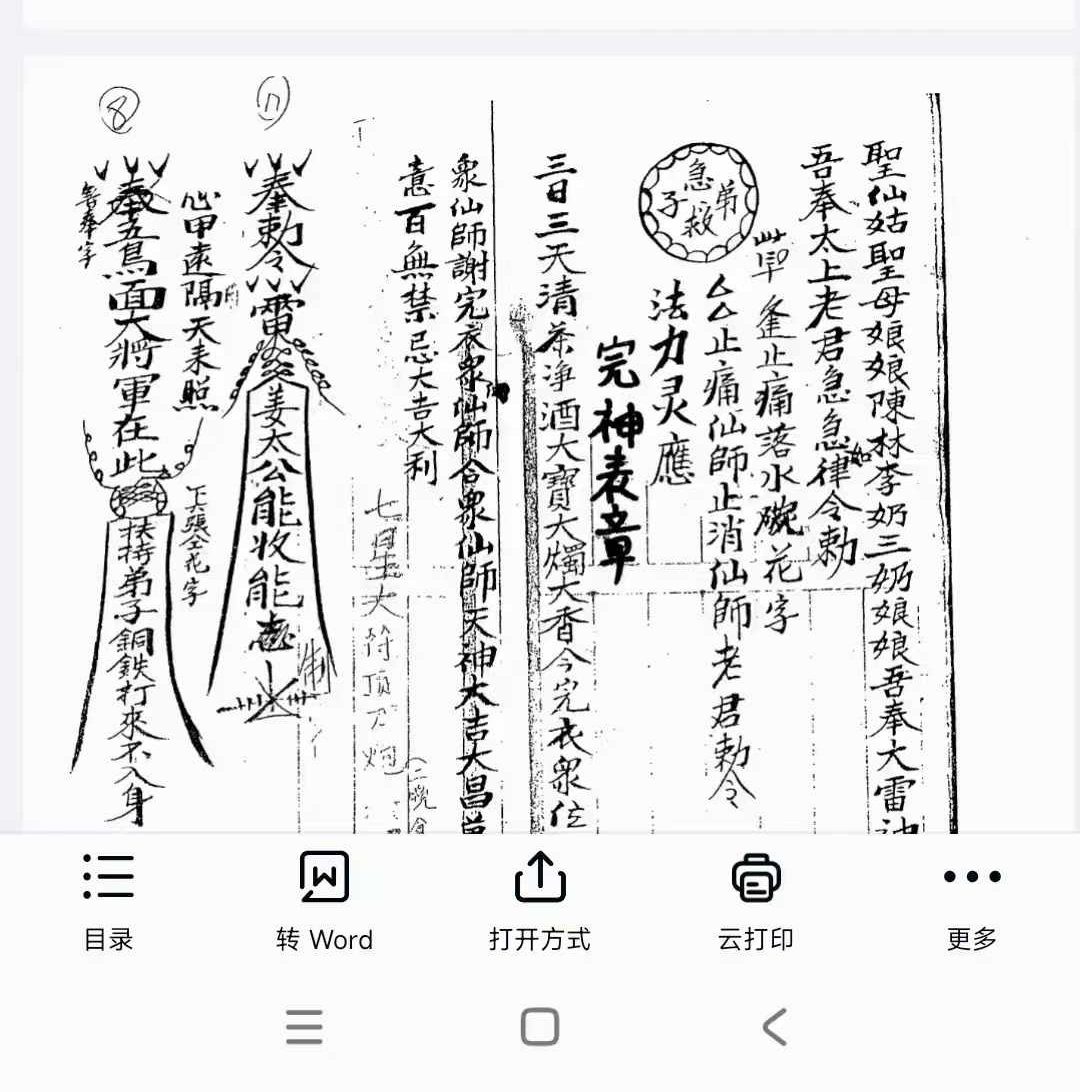 聖仙姑聖母娘娘陳林李奶三奶娘娘吾奉大雷
吾奉太上老君急急律令勅
止痛落水碗花字
止痛仙師止消仙師老君勅令
法力灵應
弟子急救
完神表章
三日三天清茶净酒大寶大燭大香今完衣眾位
眾仙師謝完衣眾仙師合眾仙師天神大吉大昌
意百無禁忌大吉大利
七星大符頂刀炮
奉勅令雷姜太公能收能
制
心甲遠隔天来照
奉五鳥面大將軍在此扶持弟子銅鉄打來不入身
奉字
8
目录
转 Word
打开方式
云打印
更多